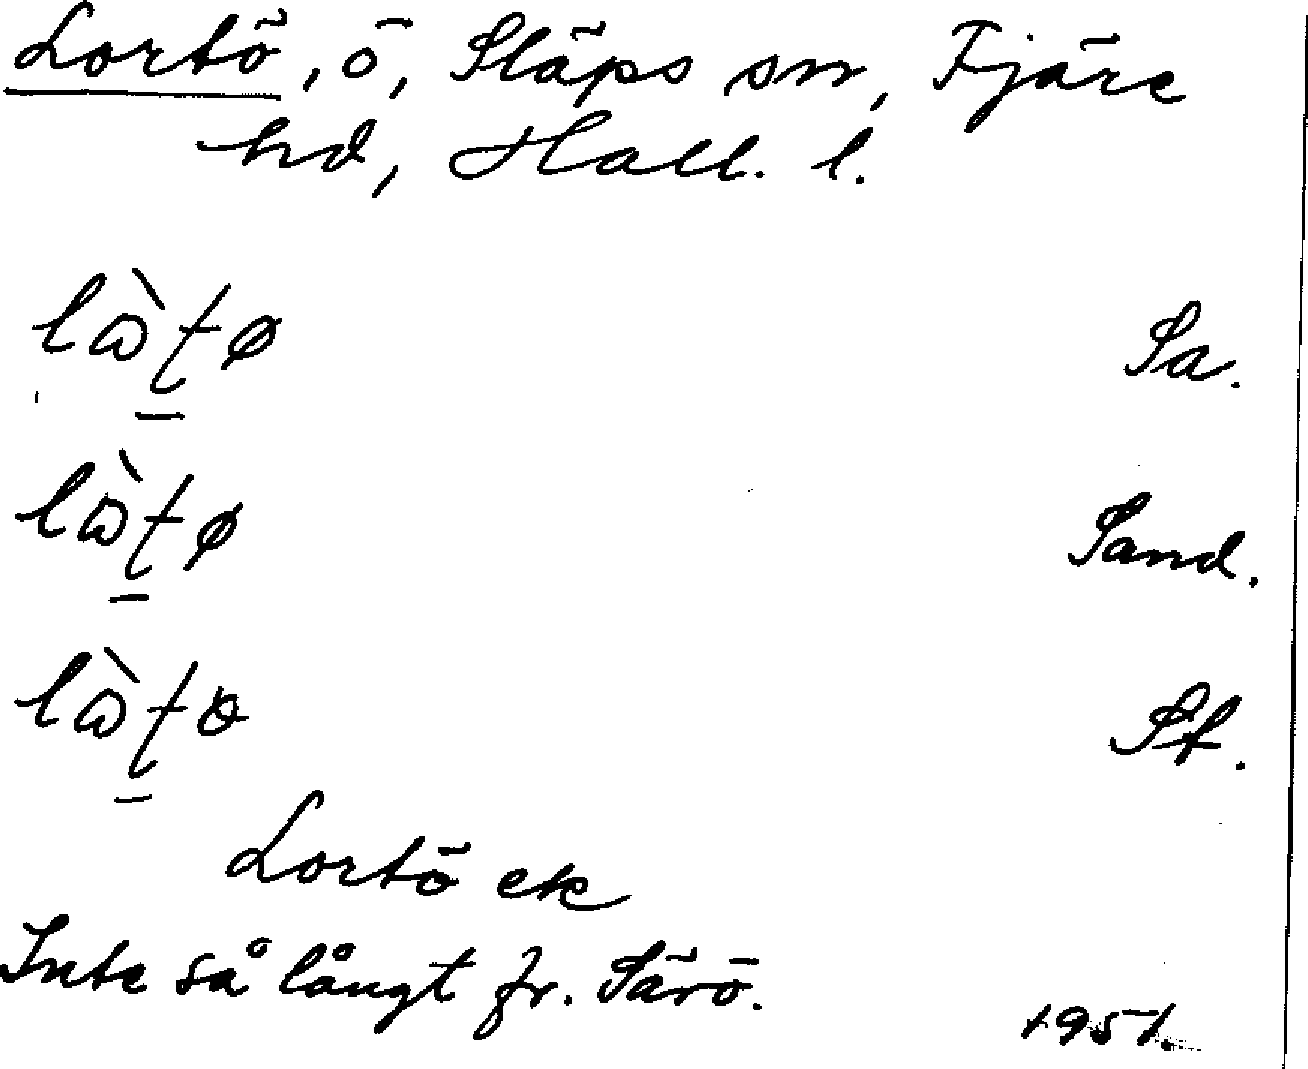 Lortö, ö, Släps sn, Fjäre
hd, Hall. l.
Sa.
Sand.
Sf.
Lortö ek
Inte så långt fr. Särö.
1951.